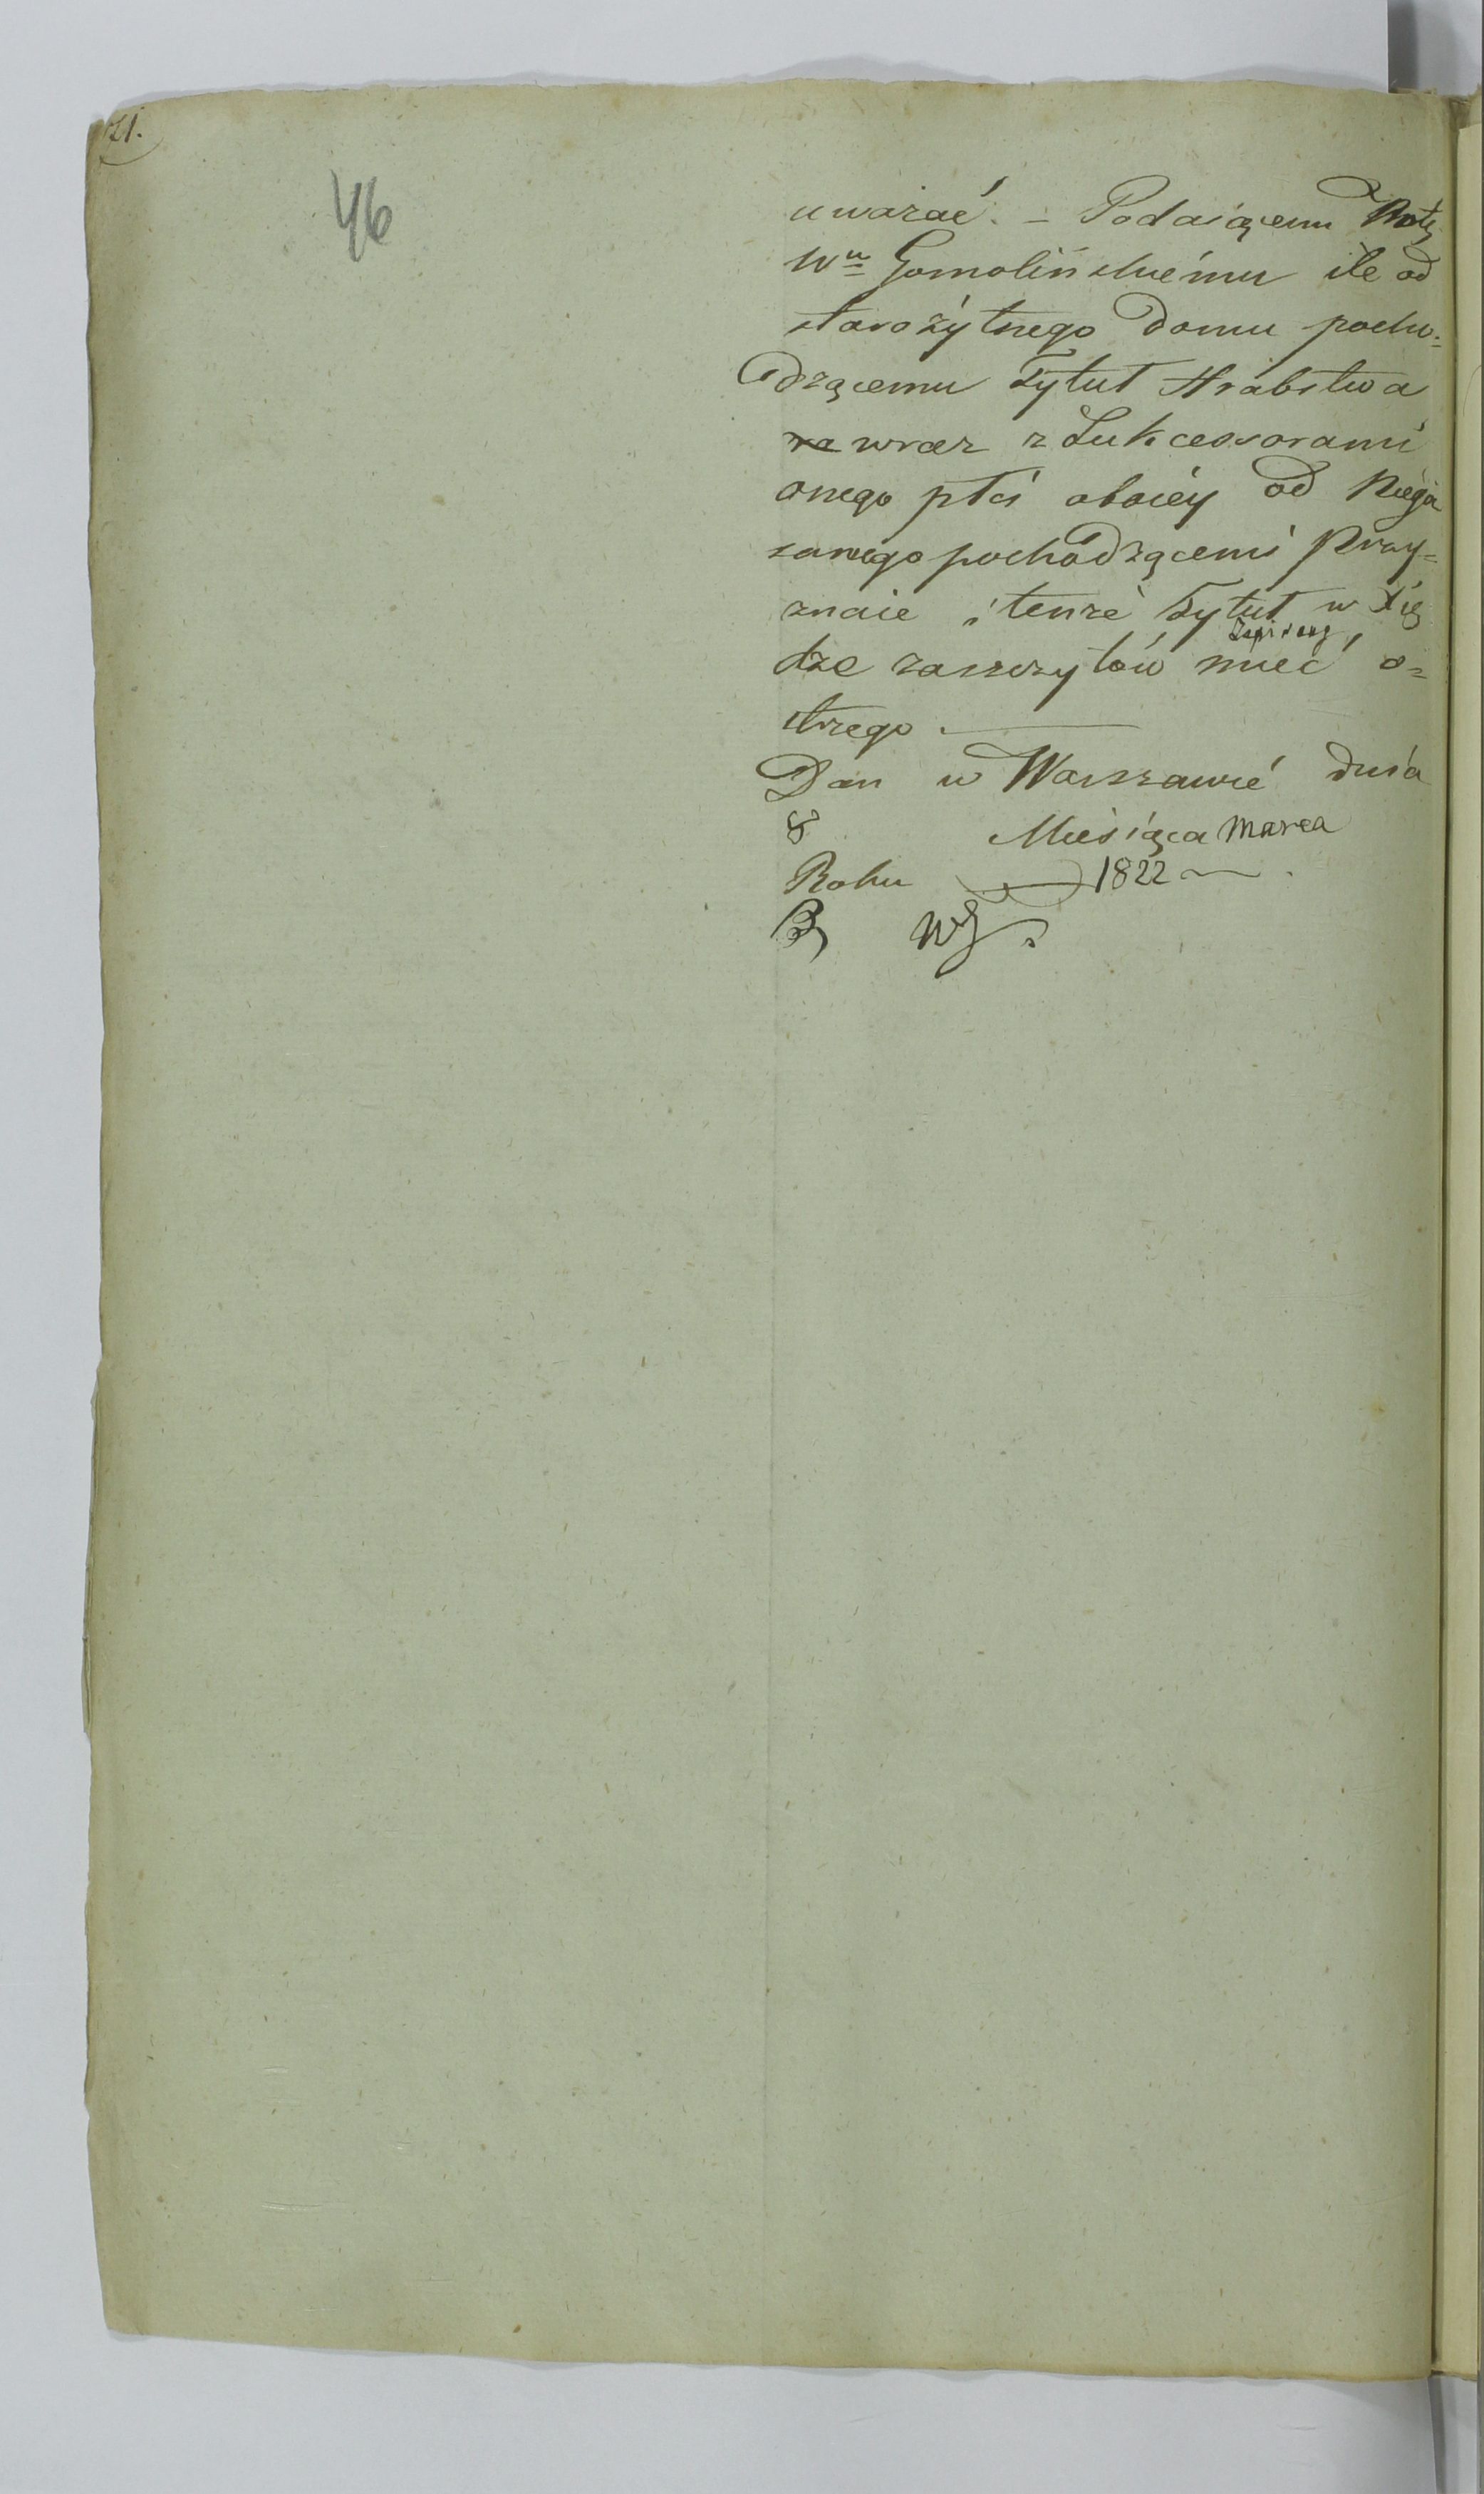 21.
46
uważać. – Podaiącemu Notę
Wu Gomolińskiému ile od
starożytnego domu pocho=
dzącemu Tytuł Hrabstwa
wraz z Sukcessorami
onego płci oboiéy od Niego
samego pochodzącemi Przy=
znaie i tenże Tytuł w Xię
zapisany
dze zaszczytów mieć o=
strzego.
Dan w Warszawie dnia
8 Miesiąca Marca
Roku 1822